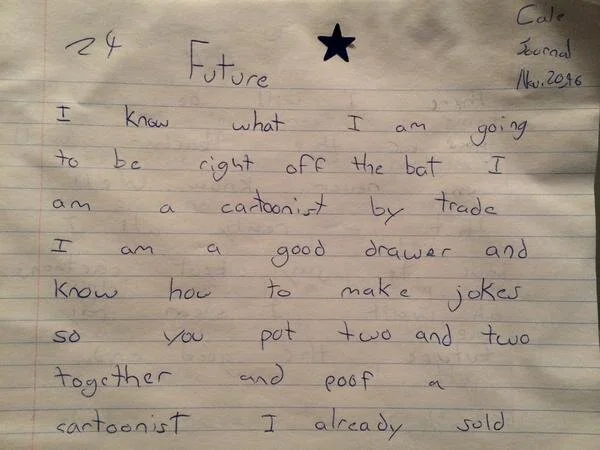 Cale
24
Journal
Future
Nov. 2016
I know what I am going
to be right off the bat I
am a cartoonist by trade
I am a good drawer and
know how to make jokes
so you pot two and two
together and poof a
cartoonist I already sold